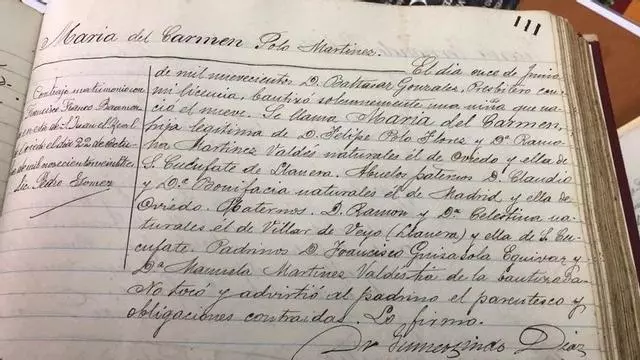 111
Maria del Carmen Polo Martinez.
Contrajo matrimonio con
Francisco Franco Baamon
en de S. Juan el Real
Oviedo el dia 22 de Octu
de mil novecientos veintitrés
Lic. Pedro Gomez
El dia once de Junio
de mil novecientos D. Baltasar Gonzales, Presbitero con
mi licencia, bautizó solemnemente una niña que na-
ció el nueve. Se llama Maria del Carmen,
hija legitima de D. Felipe Polo Flores y Dª Ramo
na Martinez Valdés naturales él de Oviedo y ella de
S. Cucufate de Llanera. Abuelos paternos D. Claudio
y Dª Bonifacia naturales él de Madrid y ella de
Oviedo. Maternos. D. Ramon y Dª Celestina na-
turales él de Villar de Veyo (Llanera) y ella de S. Cu-
cufate. Padrinos D. Francisco Guisasola Equivar y
Dª Manuela Martinez Valdés tia de la bautizada.
No tocó y advirtió al padrino el parentesco y
obligaciones contraidas. Lo firmo.
Dr Gumersindo Diaz